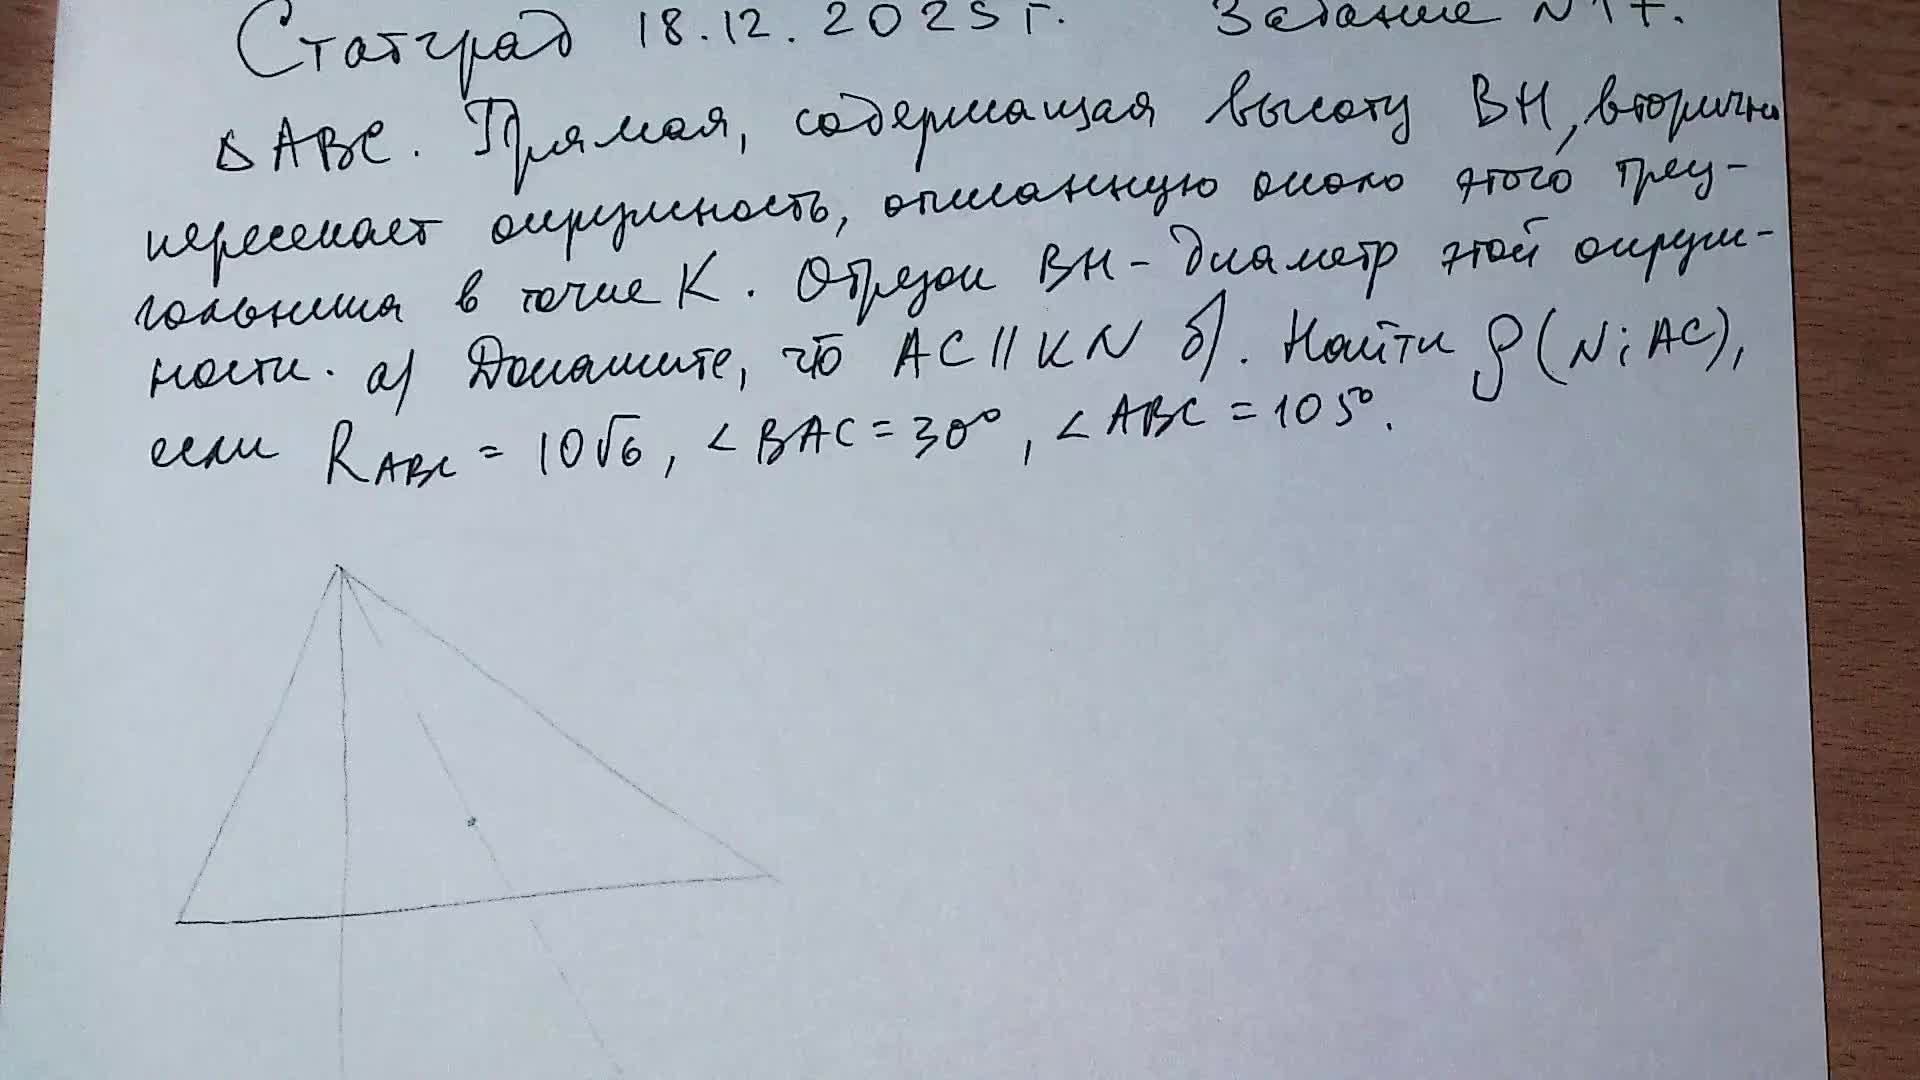 Статград 18.12.2025 г. Задание №17.
△ABC. Прямая, содержащая высоту BH, вторично
пересекает окружность, описанную около этого треу-
гольника в точке K. Отрезок BH - диаметр этой окруж-
ности. а) Докажите, что AC || KN б). Найти ρ(N; AC),
если R_ABC = 10√6, ∠BAC = 30°, ∠ABC = 105°.